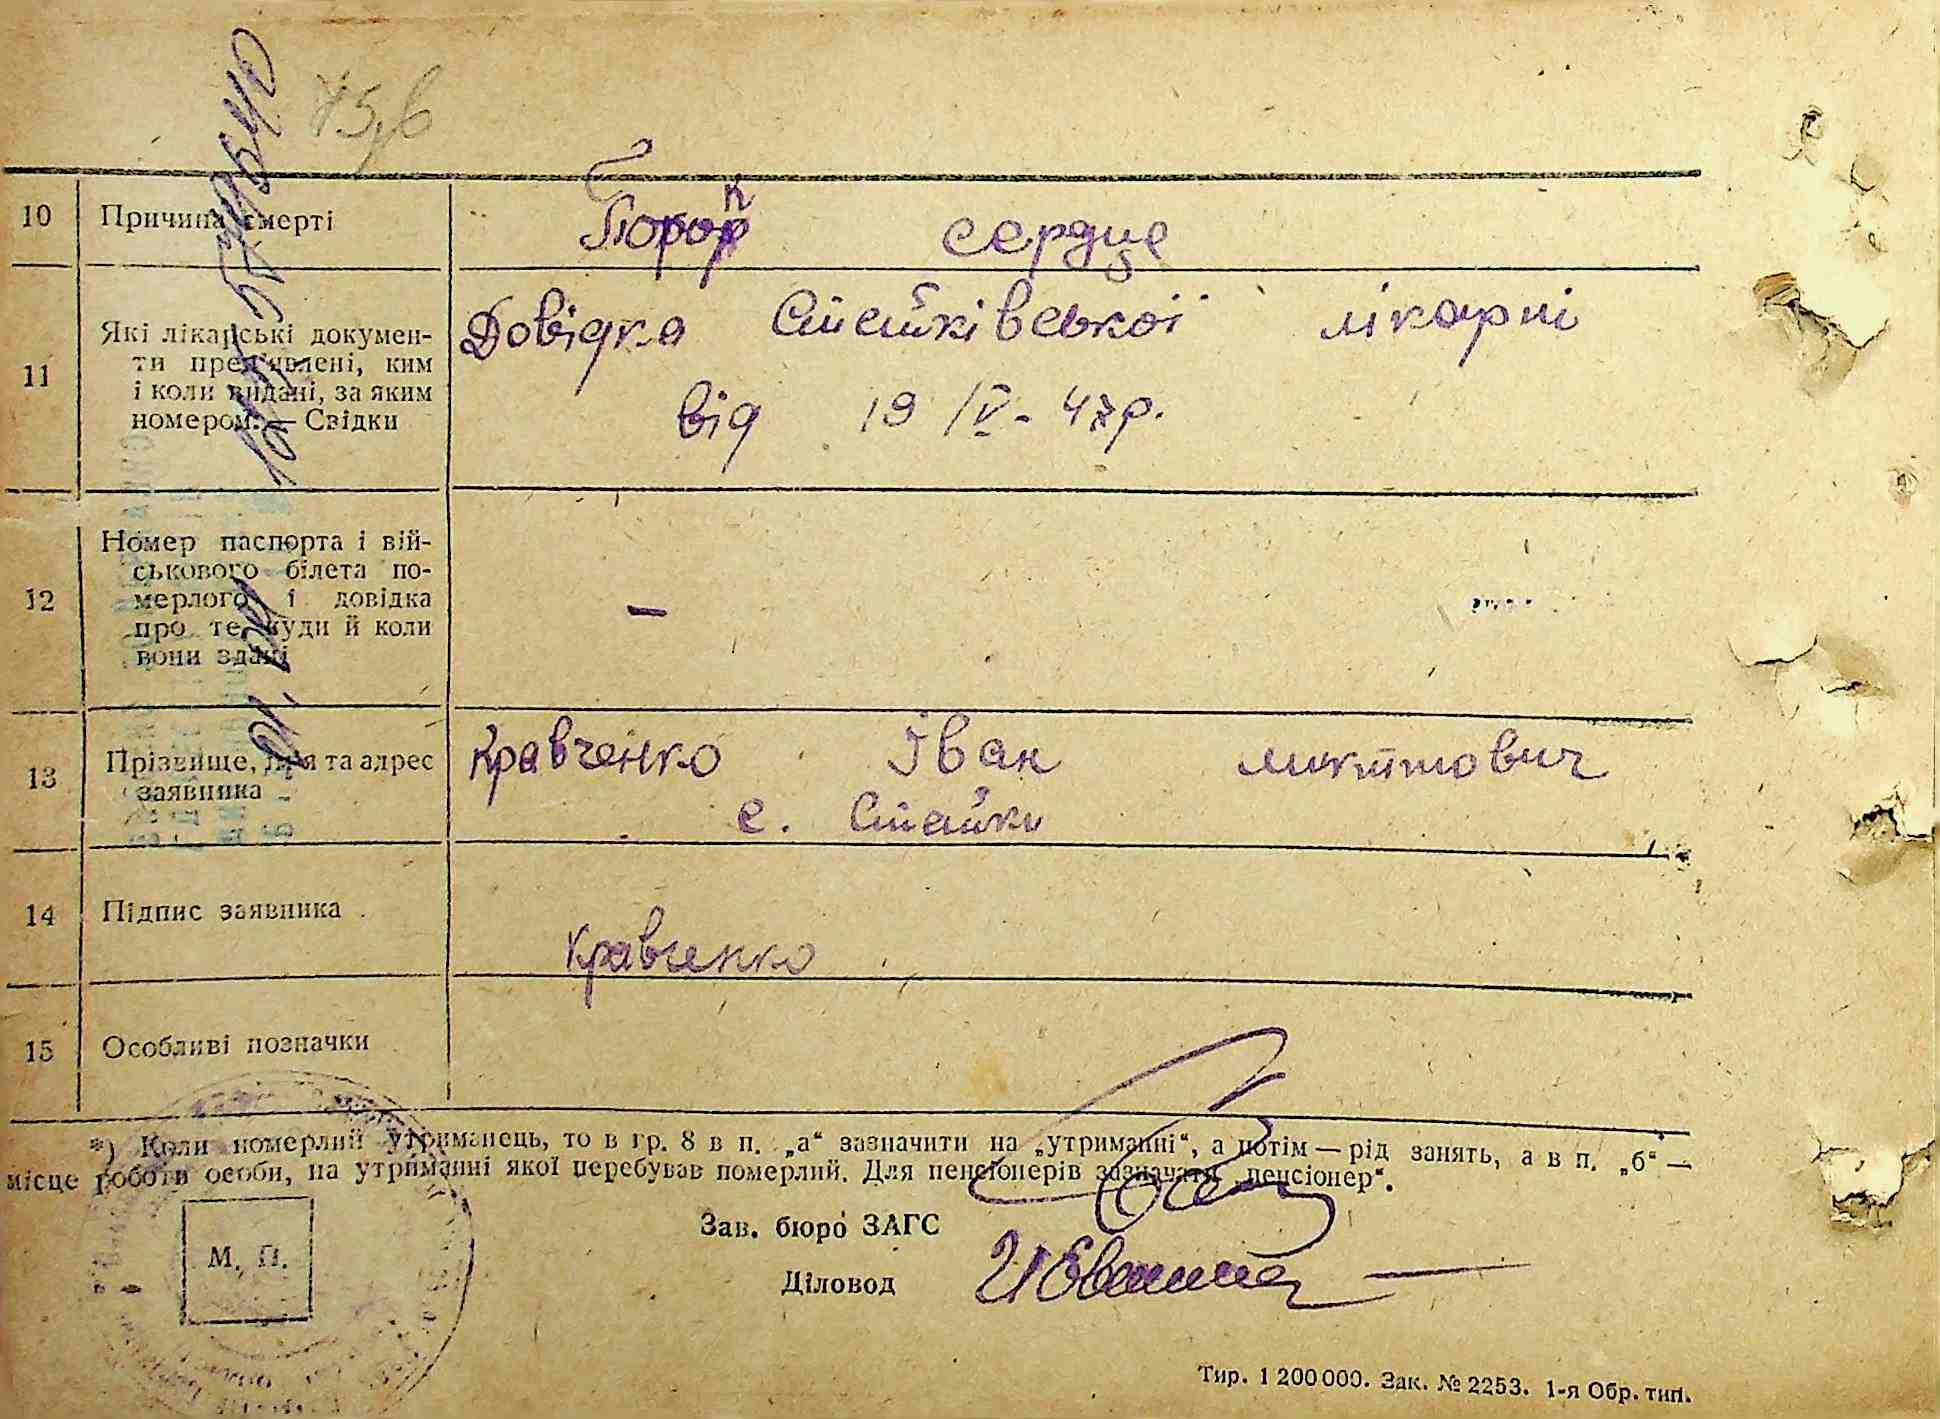 75,6
10 Причина смерті Порок сердце
11 Які лікарські докумен-
ти пред'явлені, ким
і коли видані, за яким
номером. — Свідки
Довідка Стайківської лікарні
від 19/V - 47р.
12 Номер паспорта і вій-
ськового білета по-
мерлого і довідка
про те, куди й коли
вони здані
–
13 Прізвище, ім'я та адрес
заявника
Кравченко Іван Микитович
с. Стайки
14 Підпис заявника
Кравченко
15 Особливі позначки
*) Коли померлий утриманець, то в гр. 8 в п. „а“ зазначити на „утриманні“, а потім — рід занять, а в п. „б“ —
місце роботи особи, на утриманні якої перебував померлий. Для пенсіонерів зазначати „пенсіонер“.
М. П.
Зав. бюро ЗАГС
Діловод
Тир. 1 200 000. Зак. № 2253. 1-я Обр. тип.